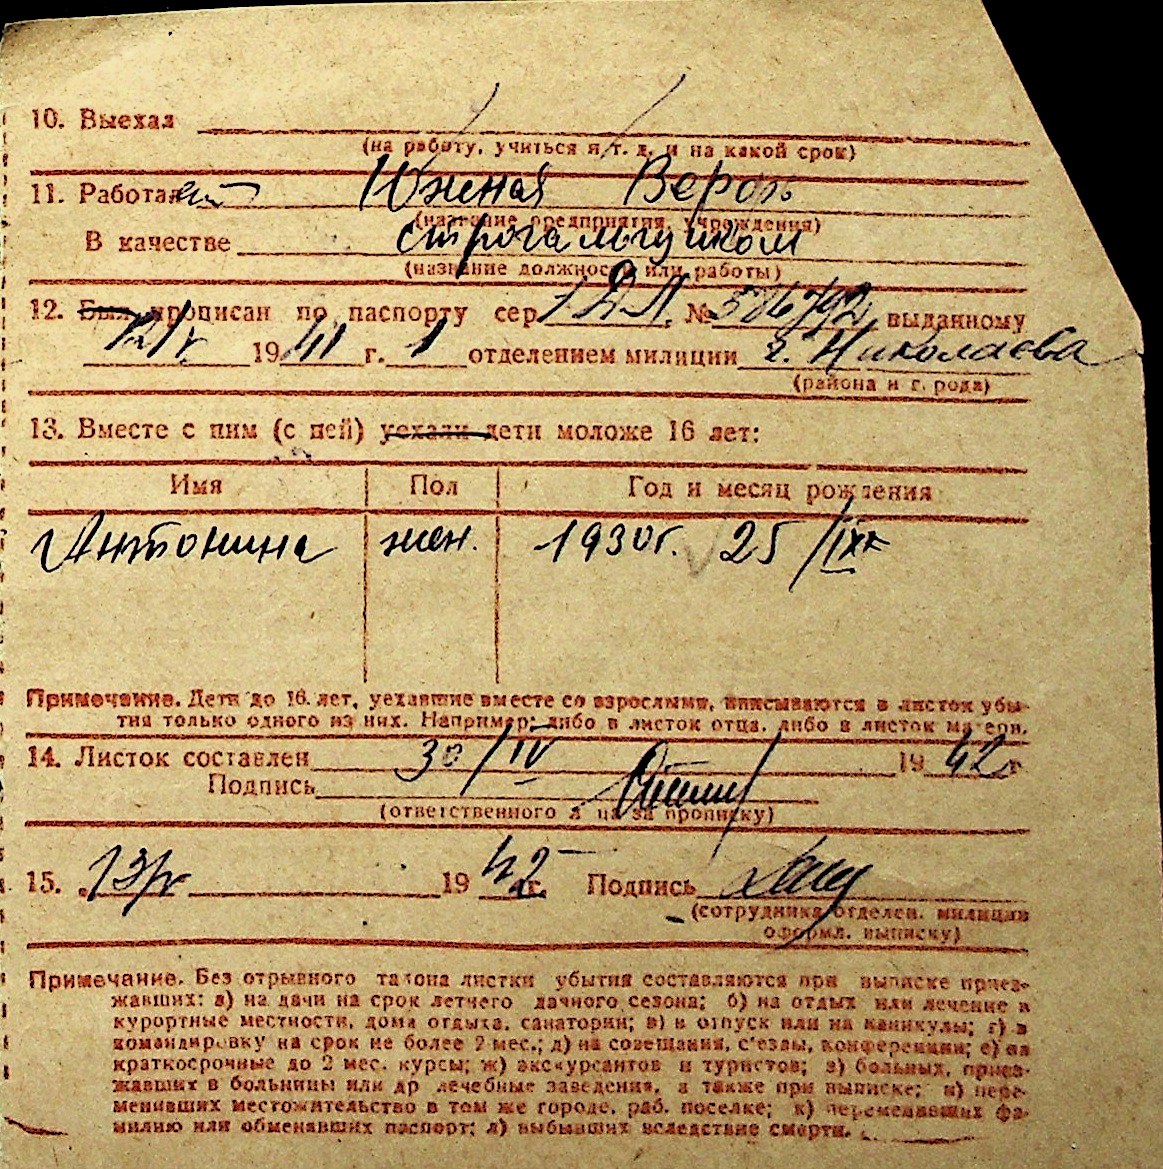 10. Выехал
(на работу, учиться и т. д. и на какой срок)
11. Работает Южная Верфь
(название предприятия, учреждения)
В качестве строгальщиком
(название должности или работы)
12. Был прописан по паспорту сер № выданному
12/V 1941 г. 1 отделением милиции г. Николаева
(района и города)
13. Вместе с ним (с ней) уехали дети моложе 16 лет:
Имя Пол Год и месяц рождения
Антонина жен. 1930г. 25
Примечание. Дети до 16 лет, уехавшие вместе со взрослыми, вписываются в листок убы-
тия только одного из них. Например: либо в листок отца, либо в листок матери.
14. Листок составлен 30/IV 1942 г
Подпись
(ответственного лица за прописку)
15. 1942 г. Подпись
(сотрудника отделен. милиции
оформл. выписку)
Примечание. Без отрывного талона листки убытия составляются при выписке приез-
жавших: а) на дачи на срок летнего дачного сезона; б) на отдых или лечение в
курортные местности, дома отдыха, санатории; в) в отпуск или на каникулы; г) в
командировку на срок не более 2 мес.; д) на совещания, с'езды, конференции; е) на
краткосрочные до 2 мес. курсы; ж) экскурсантов и туристов; з) больных, приез-
жавших в больницы или др лечебные заведения, а также при выписке; и) пере-
менивших местожительство в том же городе, раб. поселке; к) переменивших фа-
милию или обменявших паспорт; л) выбывших вследствие смерти.